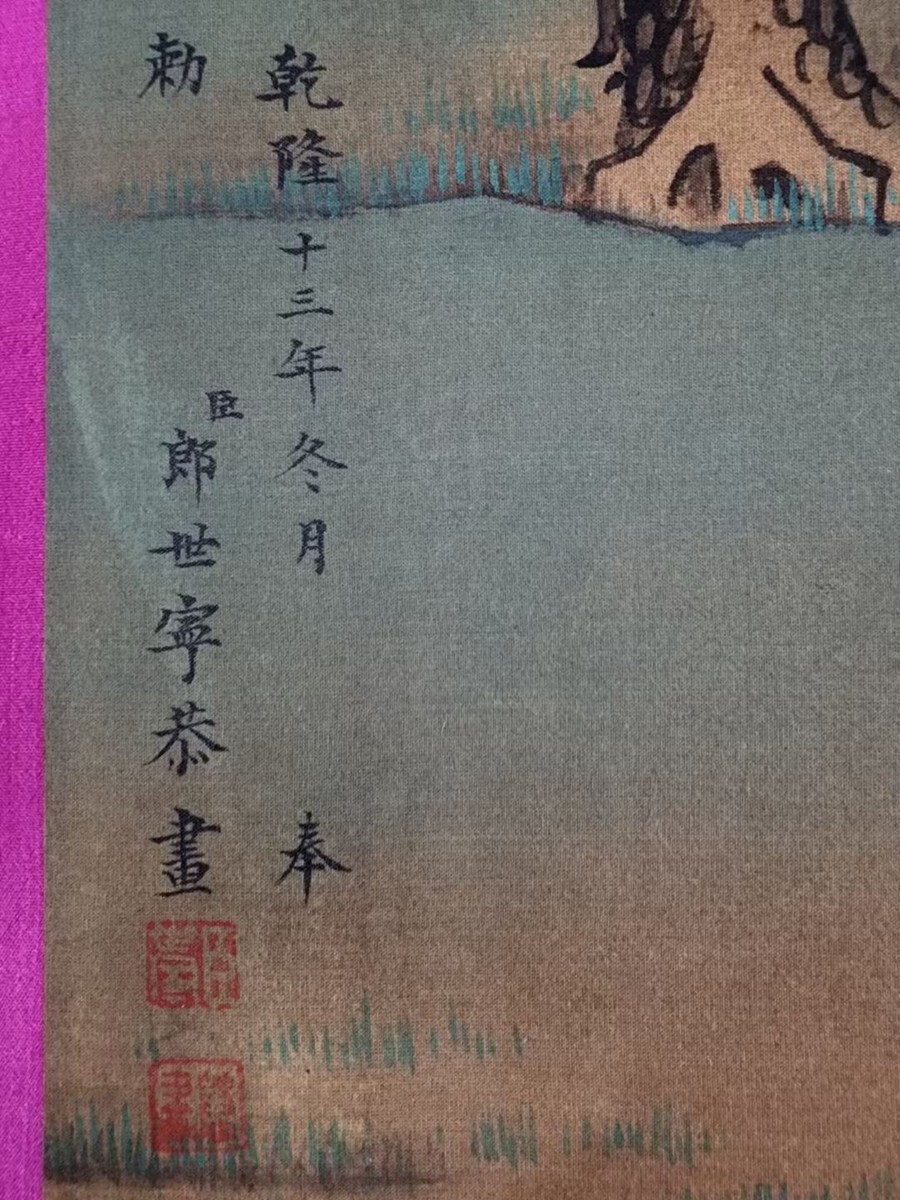 乾隆十三年冬月奉
勅
臣郎世寧恭畫